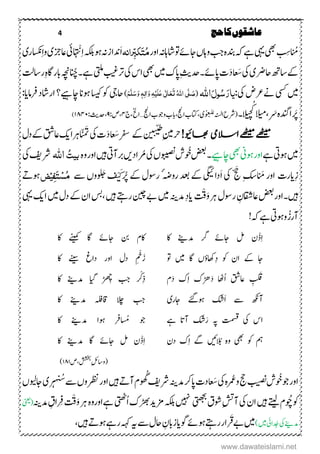 عاشقوں کا حج 4
مُناسِب بھی یہی ہے کہ بندہ جب وہاں جائے تو شاہانہ اور مُتکبِّرانہ انداز نہ ہو بلکہ اِنتہائی عاجِزی واِنکساری
کے ساتھ حاضِری کی سَعادَت پائے۔ حدیثِ پاک میں بھی اس کی ترغیب ملتی ہے۔ چُنانْچِہ بارگاہِ رسالت
میں کسی نے عرض کی یارسولَ اللہ (صَلَّی اللہُ تَعَالٰی عَلَیْہِ وَاٰلِہٖ وَسَلَّمَ) حاجی کو کیسا ہونا چاہیے؟ ارشاد فرمایا:
پراگندہ سر، میلا کچیلا۔
میٹھے میٹھے اسلامی بھائیو! حرمینِ طَیِّبَیْن کے سفر کی سَعادَت ملنا ہر ایک عاشق کے دل کی
تمنا ہوتی ہے اور ہونی بھی چاہیے۔ بعض خوش نصیبوں کی مُرادیں بَر آتی ہیں اور وہ بیتُ اللہ شریف کی
زیارت اور مَناسِکِ حج کی ادائیگی کے بعد روضۂ رسول کے پُرکیف جلووں سے مُستفیض ہوتے
ہیں۔ اور بعض عاشقانِ رسول ہر وَقْت یادِ مدینہ میں بے چین رہتے ہیں، بس ان کے دل میں ایک یہی
آرزو ہوتی ہے کہ!
اِذْن مل جائے گر مدینے کا کام بن جائے گا کمینے کا
جا کے ان کو دکھاؤں گا میں تو زخمِ دل اور داغ سینے کا
قلبِ عاشق اُٹھا دھڑک اک دم ذِکر جب چھڑ گیا مدینے کا
آنکھ سے اشک ہو گئے جاری جب چلا قافلہ مدینے کا
اس کی قسمت پہ رشک آتا ہے جو مسافر ہوا مدینے کا
ہم کو بھی وہ بلائیں گے اک دن اِذْن مل جائے گر مدینے کا
(وسائلِ بخشش، ص۱۸۱)
اور جو خوش نصیب حج وعمرہ کی سَعادَت پا کر مدینہ شریف گھوم آتے ہیں اور نظروں سے سُنہری جالیوں
کو چوم لیتے ہیں ان کی آتشِ شوق بجھتی نہیں بلکہ مزید بھڑک اُٹھتی ہے اور وہ ہر وَقْت فِراقِ مدینہ (یعنی
مدینے کی جدائی میں) میں بے قرار رہتے ہوئے گویا زبانِ حال سے یہ کہہ رہے ہوتے ہیں،
www.dawateislami.net